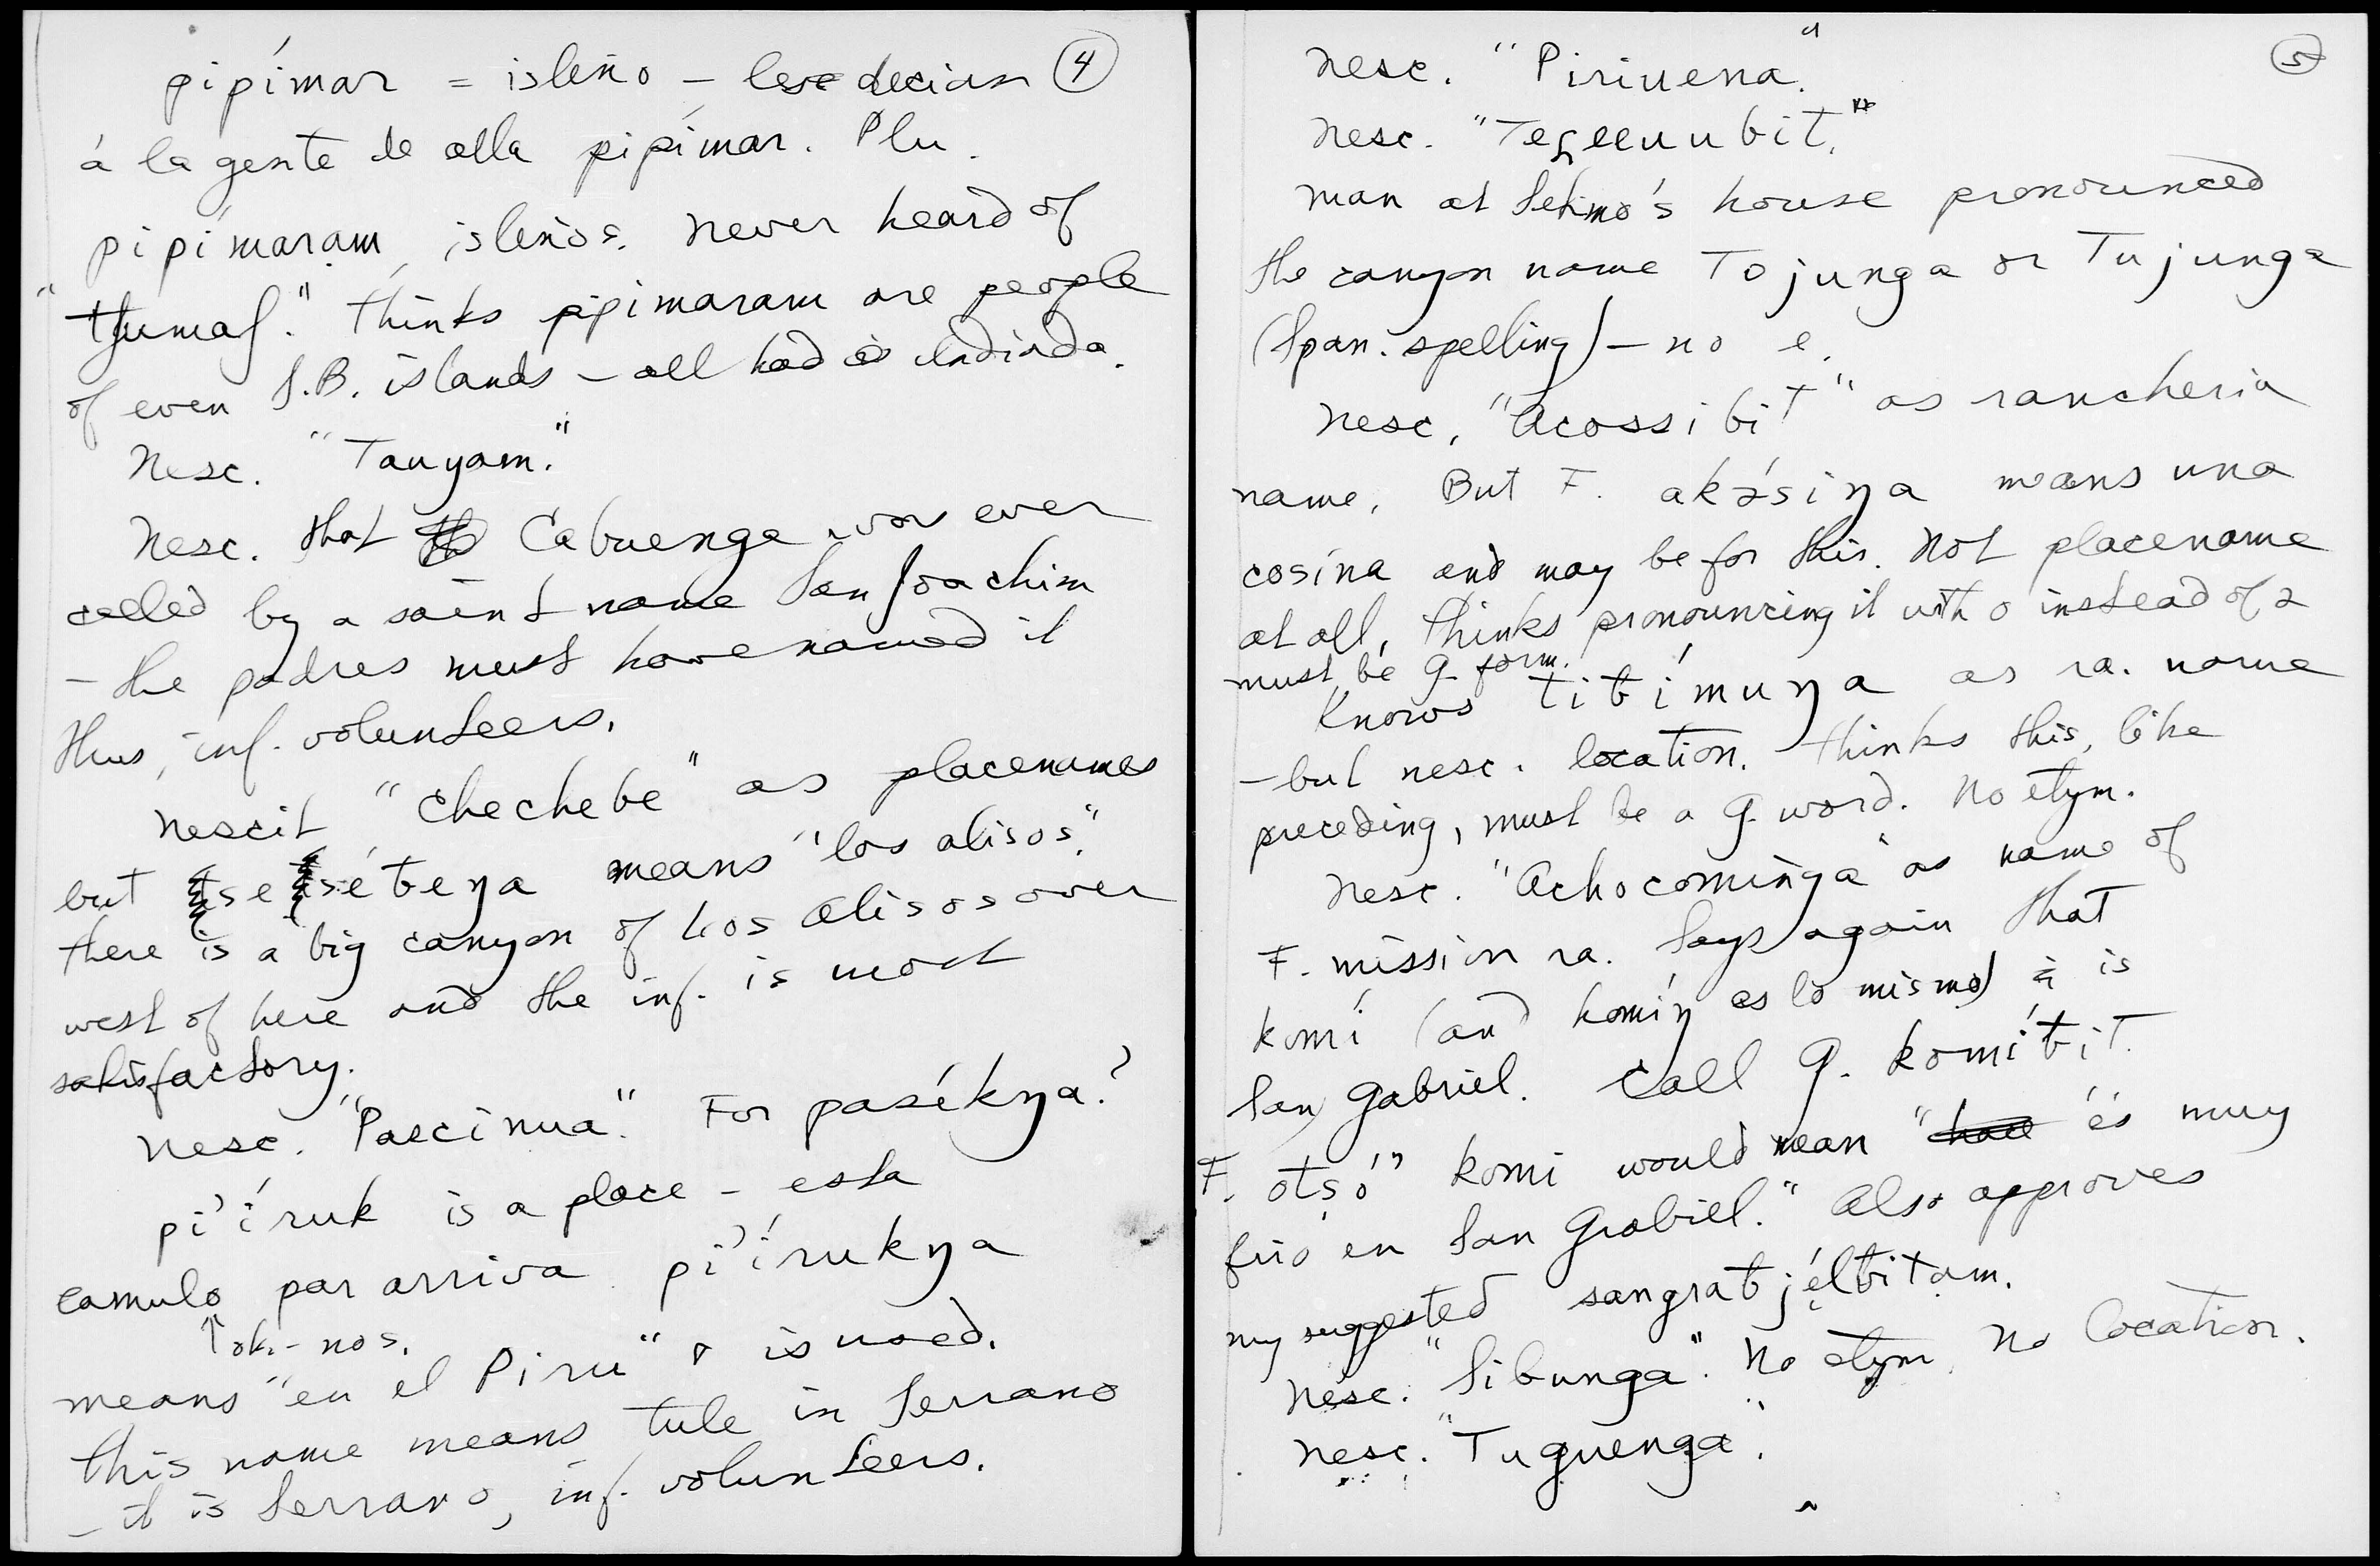 4
pipímar = isleño – les decian
á la gente de alla pipímar. Plu.
pipímaram, isleños. Never heard of
"tʃumaʃ." Thinks pipimaram are people
of even S.B. islands – all had indiada.
Nesc. "Tauyam."
Nesc. that Cabuenga was ever
called by a saint name San Joachim
– the padres must have named it
thus, inf. volunteers.
Nescit "chechebe" as placenames
but sesébeŋa means "los alisos".
there is a big canyon of Los Alisos over
west of here and the inf. is most
satisfactory.
Nesc. "Pascinua." For paséknga?
pi'íruk is a place – esta
camulo par arriva pi'írukŋa
↑ok.-nos.
means "en el Piru" & is used.
this name means tule in Serrano
– it is Serrano, inf. volunteers.
5
Nesc. "Piriuena."
Nesc. "Teʢeeuubit."
man at Setimo's house pronounced
the canyon name Tojunga or Tujunga
(Span. spelling) – no e.
Nesc. "Acossibit" as rancheria
name. But F. akɔ́siŋa means una
cosina and may be for this. Not placename
at all. Thinks pronouncing it with o instead of ɔ
must be G. form.
Knows tibímuŋa as ra. name
– but nesc. location. Thinks this, like
preceding, must be a G. word. No etym.
Nesc. "Achocominga" as name of
F. mission ra. Says again that
komí (and komíŋ es lo mismo) is
San Gabriel. Call G. komíbit.
F. otsó' komi would mean "es muy
frio en San Grabiel." Also approves
my suggested sangrabjélbitam.
Nesc. "Sibunga". No etym. No location.
Nesc. "Tuguenga".